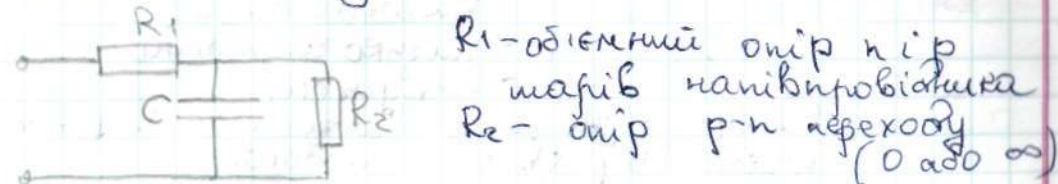 R1
R1 - обʼємний опір n і p
шарів напівпровідника
C
R2
R2 - опір p-n переходу
(0 або ∞)